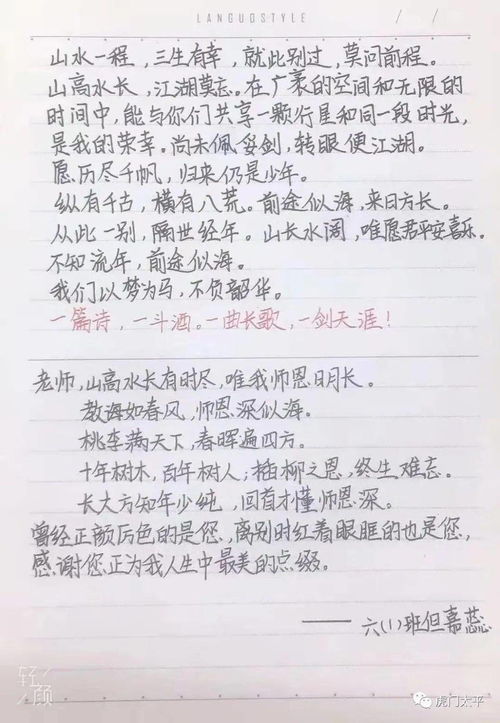 LANGUOSTYLE
/ /
山水一程，三生有幸，就此别过，莫问前程。
山高水长，江湖莫忘。在广袤的空间和无限的
时间中，能与你们共享一颗行星和同一段时光，
是我的荣幸。尚未佩妥剑，转眼便江湖。
愿历尽千帆，归来仍是少年。
纵有千古，横有八荒。前途似海，来日方长。
从此一别，隔世经年。山长水阔，唯愿君平安喜乐。
不知流年，前途似海。
我们以梦为马，不负韶华。
一篇诗，一斗酒。一曲长歌，一剑天涯！
老师，山高水长有时尽，唯我师恩日月长。
教诲如春风，师恩深似海。
桃李满天下，春晖遍四方。
十年树木，百年树人；插柳之恩，终生难忘。
长大方知年少纯，回首才懂师恩深。
曾经正颜厉色的是您，离别时红着眼眶的也是您，
感谢您正为我人生中最美的点缀。
——六(1)班但嘉蕊
轻颜
虎门太平